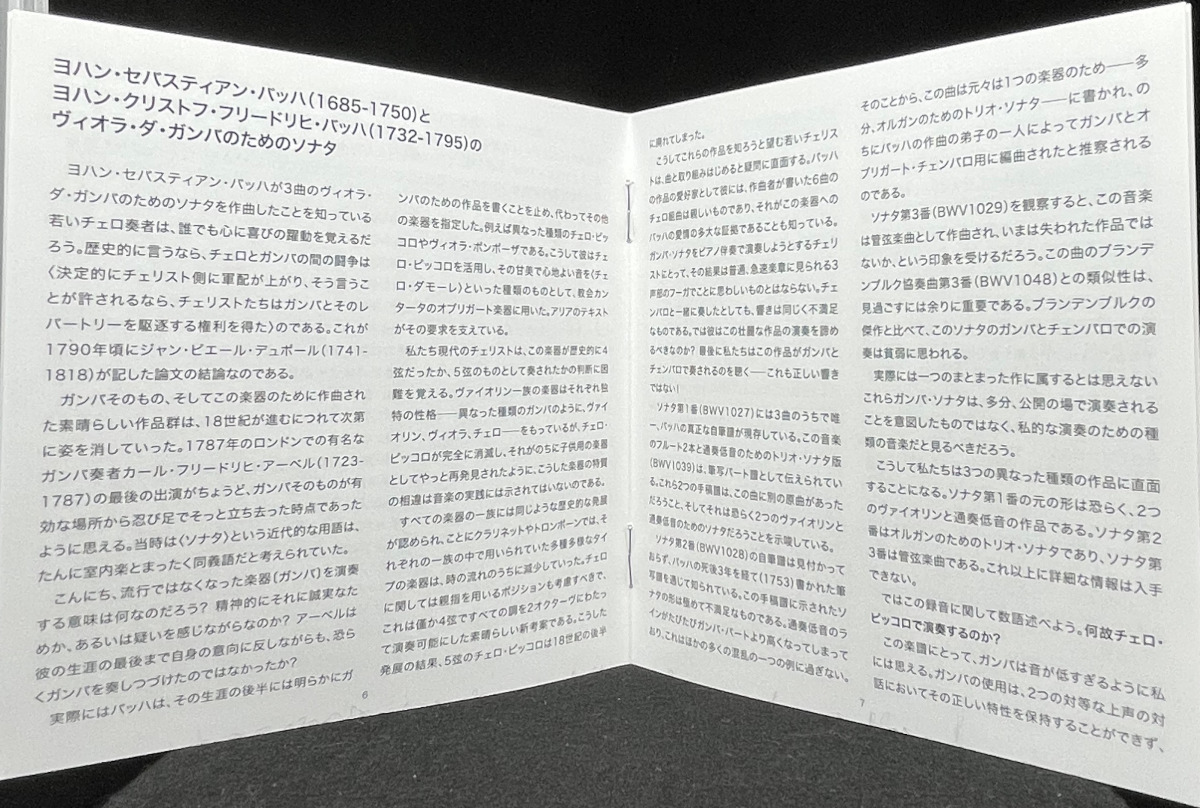 ヨハン・セバスティアン・バッハ(1685-1750)と
ヨハン・クリストフ・フリードリヒ・バッハ(1732-1795)の
ヴィオラ・ダ・ガンバのためのソナタ
ヨハン・セバスティアン・バッハが3曲のヴィオラ・
ダ・ガンバのためのソナタを作曲したことを知っている
若いチェロ奏者は、誰でも心に喜びの躍動を覚えるだ
ろう。歴史的に言うなら、チェロとガンバの間の闘争は
〈決定的にチェリスト側に軍配が上がり、そう言うこ
とが許されるなら、チェリストたちはガンバとそのレ
パートリーを駆逐する権利を得た〉のである。これが
1790年頃にジャン・ピエール・デュポール(1741-
1818)が記した論文の結論なのである。
ガンバそのもの、そしてこの楽器のために作曲され
た素晴らしい作品群は、18世紀が進むにつれて次第
に姿を消していった。1787年のロンドンでの有名な
ガンバ奏者カール・フリードリヒ・アーベル(1723-
1787)の最後の出演がちょうど、ガンバそのものが有
効な場所から忍び足でそっと立ち去った時点であった
ように思える。当時は〈ソナタ〉という近代的な用語は、
たんに室内楽とまったく同義語だと考えられていた。
こんにち、流行ではなくなった楽器(ガンバ)を演奏
する意味は何なのだろう? 精神的にそれに誠実なた
めか、あるいは疑いを感じながらなのか? アーベルは
彼の生涯の最後まで自身の意向に反しながらも、恐ら
くガンバを奏しつづけたのではなかったか?
実際にはバッハは、その生涯の後半には明らかにガ
ンバのための作品を書くことを止め、代わってその他
の楽器を指定した。例えば異なった種類のチェロ・ピッ
コロやヴィオラ・ポンポーザである。こうして彼はチェ
ロ・ピッコロを活用し、その甘美で心地よい音を〈チェ
ロ・ダモーレ〉といった種類のものとして、教会カン
タータのオブリガート楽器に用いた。アリアのテキスト
がその要求を支えている。
私たち現代のチェリストは、この楽器が歴史的に4
弦だったか、5弦のものとして奏されたかの判断に困
難を覚える。ヴァイオリン一族の楽器はそれぞれ独
特の性格――異なった種類のガンバのように、ヴァイ
オリン、ヴィオラ、チェロ――をもっているが、チェロ・
ピッコロが完全に消滅し、それがのちに子供用の楽器
としてやっと再発見されたように、こうした楽器の特質
の相違は音楽の実践には示されてはいないのである。
すべての楽器の一族には同じような歴史的な発展
が認められ、ことにクラリネットやトロンボーンでは、そ
れぞれの一族の中で用いられていた多種多様なタイ
プの楽器は、時の流れのうちに減少していった。チェロ
に関しては親指を用いるポジションも考慮すべきで、
これは僅か4弦ですべての調を2オクターヴにわたっ
て演奏可能にした素晴らしい新考案である。こうした
発展の結果、5弦のチェロ・ピッコロは18世紀の後半
6
に廃れてしまった。
こうしてこれらの作品を知ろうと望む若いチェリス
トは、曲と取り組みはじめると疑問に直面する。バッハ
の作品の愛好家として彼には、作曲者が書いた6曲の
チェロ組曲は親しいものであり、それがこの楽器への
バッハの愛情の多大な証拠であることも知っている。
ガンバ・ソナタをピアノ伴奏で演奏しようとするチェリ
ストにとって、その結果は普通、急速楽章に見られる3
声部のフーガでことに思わしいものとはならない。チェ
ンバロと一緒に奏したとしても、響きは同じく不満足
なものである。では彼はこの壮麗な作品の演奏を諦め
るべきなのか? 最後に私たちはこの作品がガンバと
チェンバロで奏されるのを聴く――これも正しい響き
ではない!
ソナタ第1番(BWV1027)には3曲のうちで唯
一、バッハの真正な自筆譜が現存している。この音楽
のフルート2本と通奏低音のためのトリオ・ソナタ版
(BWV1039)は、筆写パート譜として伝えられてい
る。これら2つの手稿譜は、この曲に別の原曲があった
だろうこと、そしてそれは恐らく2つのヴァイオリンと
通奏低音のためのソナタだろうことを示唆している。
ソナタ第2番(BWV1028)の自筆譜は見付かって
おらず、バッハの死後3年を経て(1753)書かれた筆
写譜を通じて知られている。この手稿譜に示されたソ
ナタの形は極めて不満足なものである。通奏低音のラ
インがたびたびガンバ・パートより高くなってしまって
おり、これはほかの多くの混乱の一つの例に過ぎない。
そのことから、この曲は元々は1つの楽器のため――多
分、オルガンのためのトリオ・ソナタ――に書かれ、の
ちにバッハの作曲の弟子の一人によってガンバとオ
ブリガート・チェンバロ用に編曲されたと推察される
のである。
ソナタ第3番(BWV1029)を観察すると、この音楽
は管弦楽曲として作曲され、いまは失われた作品では
ないか、という印象を受けるだろう。この曲のブランデ
ンブルク協奏曲第3番(BWV1048)との類似性は、
見過ごすには余りに重要である。ブランデンブルクの
傑作と比べて、このソナタのガンバとチェンバロでの演
奏は貧弱に思われる。
実際には一つのまとまった作に属するとは思えない
これらガンバ・ソナタは、多分、公開の場で演奏される
ことを意図したものではなく、私的な演奏のための種
類の音楽だと見るべきだろう。
こうして私たちは3つの異なった種類の作品に直面
することになる。ソナタ第1番の元の形は恐らく、2つ
のヴァイオリンと通奏低音の作品である。ソナタ第2
番はオルガンのためのトリオ・ソナタであり、ソナタ第
3番は管弦楽曲である。これ以上に詳細な情報は入手
できない。
ではこの録音に関して数語述べよう。何故チェロ・
ピッコロで演奏するのか?
この楽譜にとって、ガンバは音が低すぎるように私
には思える。ガンバの使用は、2つの対等な上声の対
話においてその正しい特性を保持することができず、
7